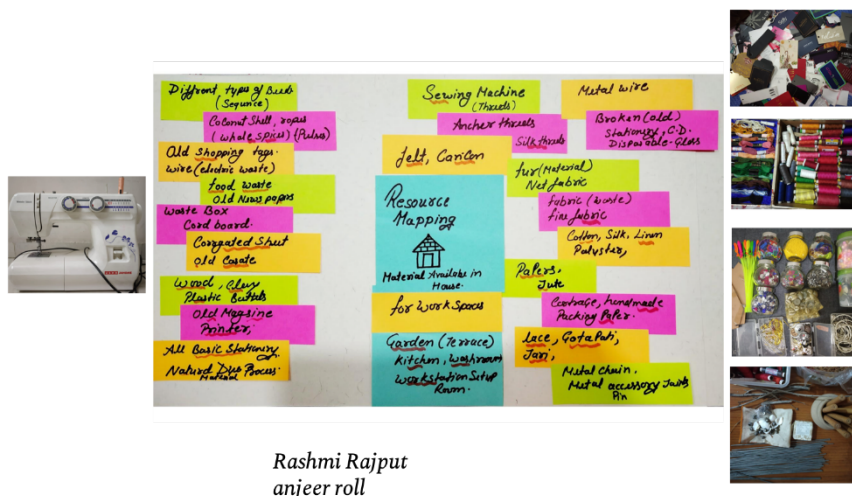 Diffrent types of Beeds
(Sequnce)
Coconut Shell, ropes
(whole spices) (Pulses)
Old Shopping tags.
wire (electric waste)
food waste
Old News papers
Waste Box
Cord board.
Corrgated Sheet
Old Casate
Wood, Clay
Plastic Buttels
Old Magsine
Printer,
All Basic Stationary,
Natural Dye Process.
Material
Sewing Machine
(Threads)
Ancher threads
Silk threds
felt, Can Can
Resource
Mapping
Material Availabe in
House.
for Work Spaces
Garden (Terrace)
Kitchen, washroom
Workstation Setup
Room.
Metal wire
Broken (old)
Stationary, C.D.
Disposable-Glass
fur (Material)
Net fabric
fabric (waste)
fine fabric
Cotton, Silk, Linen
Polyster,
Papers,
Jute
handmade
Packing Paper.
lace, Gota Pati,
Jari,
Metal chain.
Metal accessory Joints
Pin
Rashmi Rajput
anjeer roll